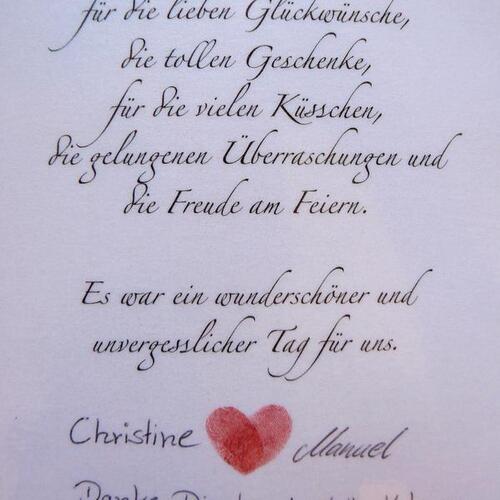 für die lieben Glückwünsche,
die tollen Geschenke,
für die vielen Küsschen,
die gelungenen Überraschungen und
die Freude am Feiern.
Es war ein wunderschöner und
unvergesslicher Tag für uns.
Christine Manuel
Danke